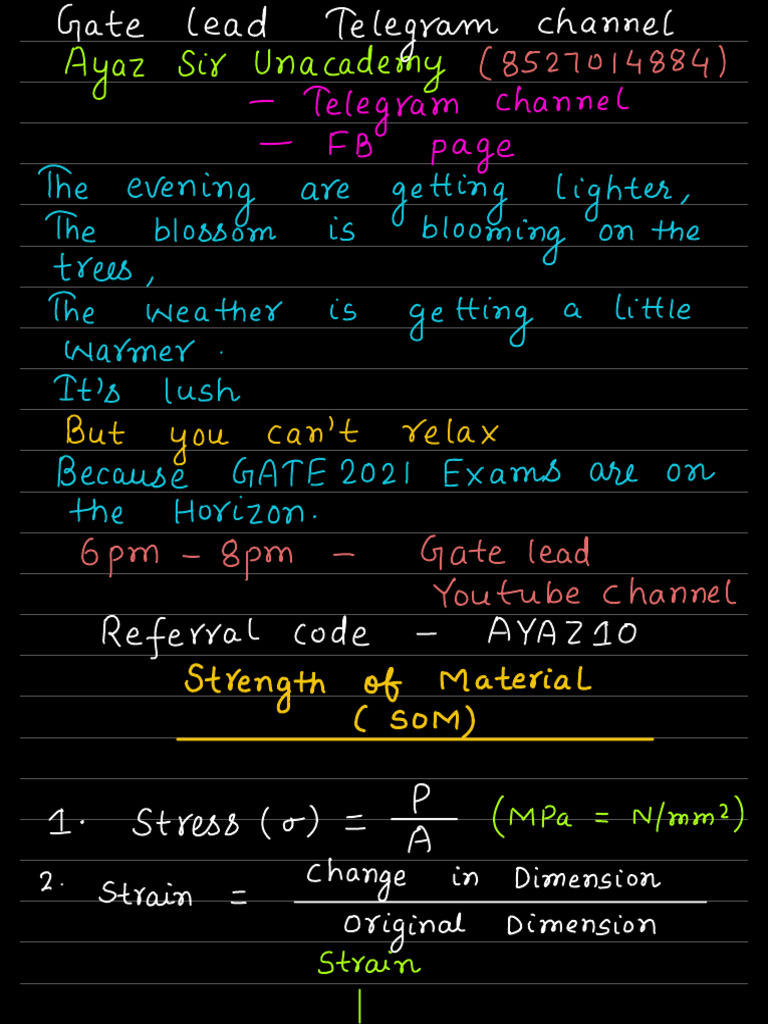 Gate lead Telegram channel
Ayaz Sir Unacademy (8527014884)
- Telegram channel
- FB page
The evening are getting lighter,
The blossom is blooming on the
trees,
The weather is getting a little
warmer.
It's lush
But you can't relax
Because GATE 2021 Exams are on
the Horizon.
6pm - 8pm - Gate lead
Youtube channel
Referral code - AYAZ10
Strength of Material
(SOM)
1. Stress (σ) = P/A (MPa = N/mm²)
2. Strain = Change in Dimension
Original Dimension
Strain